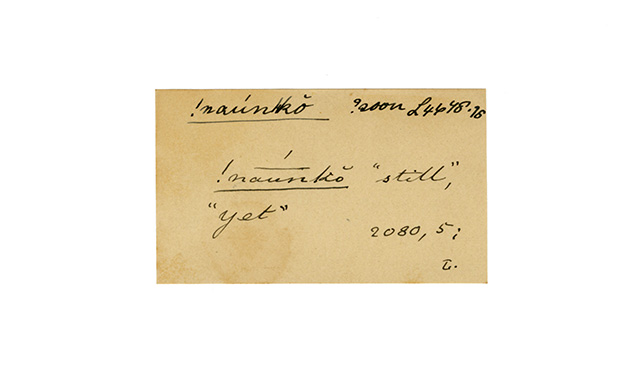 !naúnkŏ ?soon L4648.96
!naúnkŏ "still",
"yet"
2080, 5;